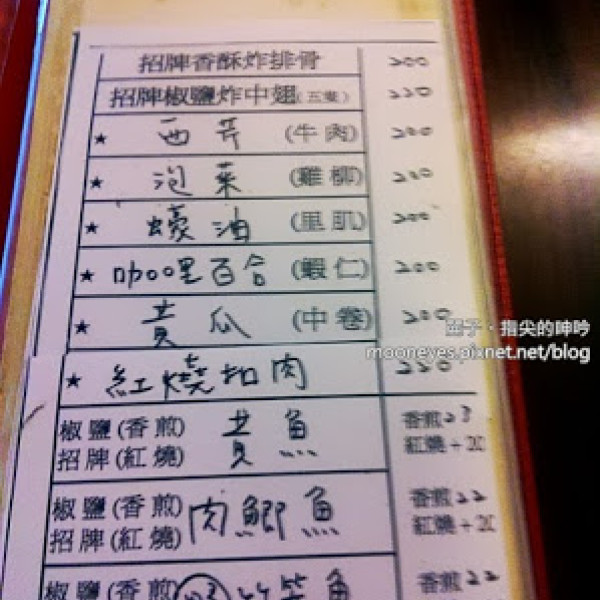 招牌香酥炸排骨 200
招牌椒鹽炸中翅(五隻) 220
★ 西芹 (牛肉) 200
★ 泡菜 (雞柳) 200
★ 蠔油 (里肌) 200
★ 咖哩百合 (蝦仁) 200
★ 黃瓜 (中卷) 200
★ 紅燒扣肉 220
椒鹽(香煎) 黃魚 香煎23
招牌(紅燒) 紅燒+20
椒鹽(香煎) 肉鯽魚 香煎22
招牌(紅燒) 紅燒+20
椒鹽(香煎) 魚 香煎22
子·指尖的呻吟
mooneyes.pixnet.net/blog